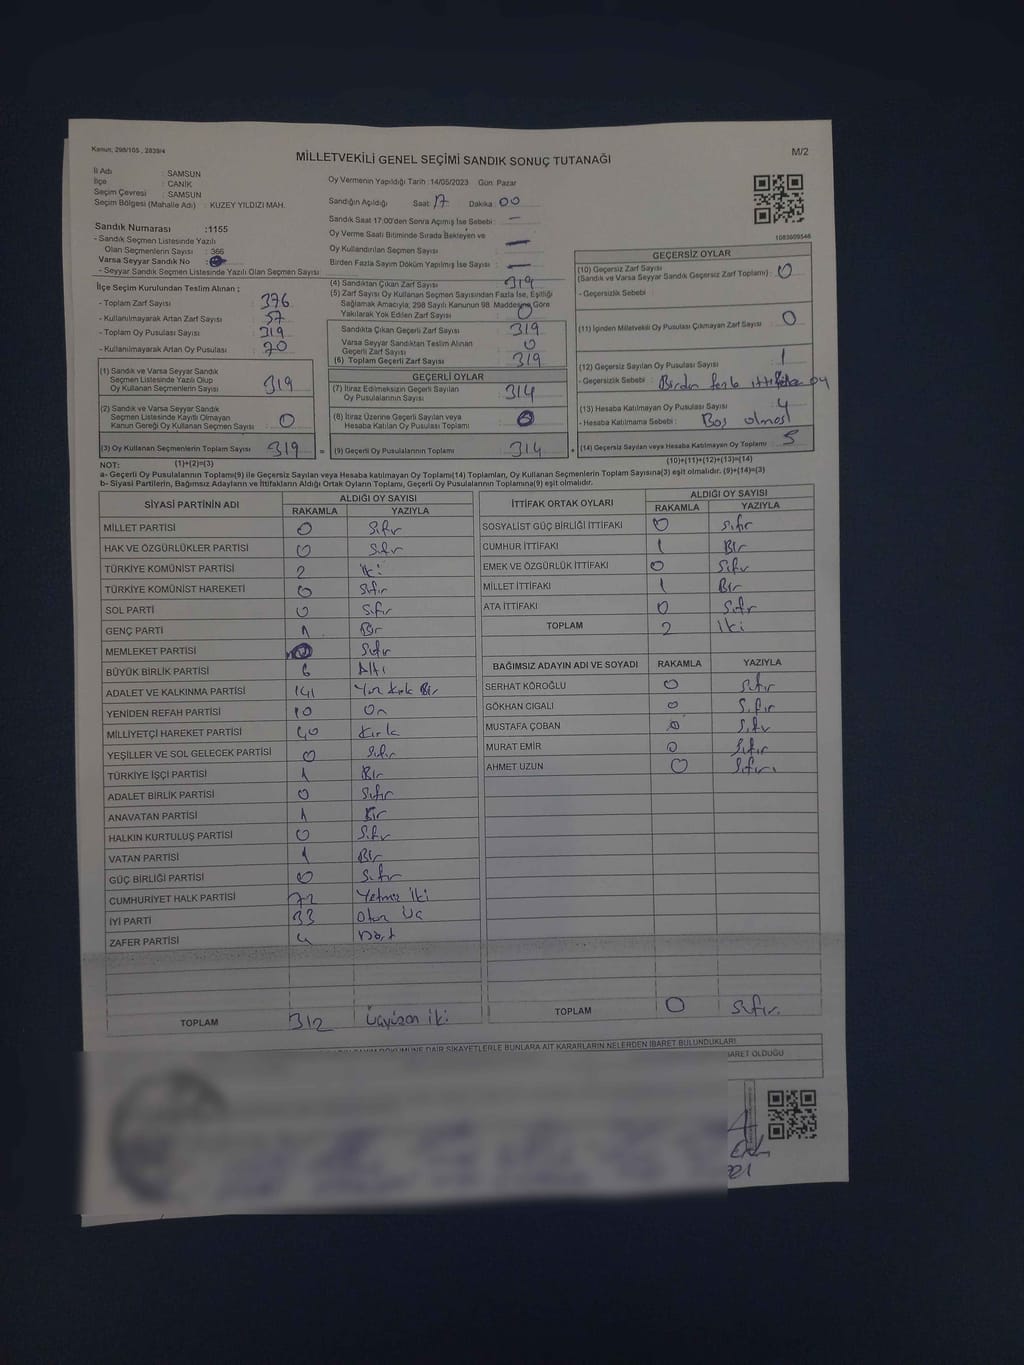 Kanun, 298/105 , 2839/4
MİLLETVEKİLİ GENEL SEÇİMİ SANDIK SONUÇ TUTANAĞI
M/2
İli Adı : SAMSUN
İlçe : CANİK
Seçim Çevresi : SAMSUN
Seçim Bölgesi (Mahalle Adı) : KUZEY YILDIZI MAH.
Sandık Numarası :1155
- Sandık Seçmen Listesinde Yazılı
Olan Seçmenlerin Sayısı : 366
Varsa Seyyar Sandık No :
- Seyyar Sandık Seçmen Listesinde Yazılı Olan Seçmen Sayısı :
Oy Vermenin Yapıldığı Tarih :14/05/2023 Gün: Pazar
Sandığın Açıldığı Saat: 17 Dakika: 00
Sandık Saat 17:00'den Sonra Açımış İse Sebebi : —
Oy Verme Saati Bitiminde Sırada Bekleyen ve
Oy Kullandırılan Seçmen Sayısı : —
Birden Fazla Sayım Döküm Yapılmış İse Sayısı : —
1083609546
İlçe Seçim Kurulundan Teslim Alınan ;
- Toplam Zarf Sayısı : 376
- Kullanılmayarak Artan Zarf Sayısı : 57
- Toplam Oy Pusulası Sayısı : 319
- Kullanılmayarak Artan Oy Pusulası : 70
(1) Sandık ve Varsa Seyyar Sandık
Seçmen Listesinde Yazılı Olup
Oy Kullanan Seçmenlerin Sayısı : 319
(2) Sandık ve Varsa Seyyar Sandık
Seçmen Listesinde Kayıtlı Olmayan
Kanun Gereği Oy Kullanan Seçmen Sayısı : 0
(3) Oy Kullanan Seçmenlerin Toplam Sayısı : 319
(4) Sandıktan Çıkan Zarf Sayısı : 319
(5) Zarf Sayısı Oy Kullanan Seçmen Sayısından Fazla İse, Eşitliği
Sağlamak Amacıyla, 298 Sayılı Kanunun 98. Maddesine Göre
Yakılarak Yok Edilen Zarf Sayısı : 0
Sandıkta Çıkan Geçerli Zarf Sayısı : 319
Varsa Seyyar Sandıktan Teslim Alınan
Geçerli Zarf Sayısı : 0
(6) Toplam Geçerli Zarf Sayısı : 319
GEÇERLİ OYLAR
(7) İtiraz Edilmeksizin Geçerli Sayılan
Oy Pusulalarının Sayısı : 314
(8) İtiraz Üzerine Geçerli Sayılan veya
Hesaba Katılan Oy Pusulası Toplamı : 0
= (9) Geçerli Oy Pusulalarının Toplamı : 314 +
GEÇERSİZ OYLAR
(10) Geçersiz Zarf Sayısı
(Sandık ve Varsa Seyyar Sandık Geçersiz Zarf Toplamı) : 0
- Geçersizlik Sebebi :
(11) İçinden Milletvekili Oy Pusulası Çıkmayan Zarf Sayısı : 0
(12) Geçersiz Sayılan Oy Pusulası Sayısı : 1
- Geçersizlik Sebebi : Birden fazla ittifaka oy
(13) Hesaba Katılmayan Oy Pusulası Sayısı : 4
- Hesaba Katılmama Sebebi : Boş olması
(14) Geçersiz Sayılan veya Hesaba Katılmayan Oy Toplamı : 5
NOT: (1)+(2)=(3)
(10)+(11)+(12)+(13)=(14)
a- Geçerli Oy Pusulalarının Toplamı(9) ile Geçersiz Sayılan veya Hesaba katılmayan Oy Toplamı(14) Toplamları, Oy Kullanan Seçmenlerin Toplam Sayısına(3) eşit olmalıdır. (9)+(14)=(3)
b- Siyasi Partilerin, Bağımsız Adayların ve İttifakların Aldığı Ortak Oyların Toplamı, Geçerli Oy Pusulalarının Toplamına(9) eşit olmalıdır.
SİYASİ PARTİNİN ADI ALDIĞI OY SAYISI
RAKAMLA YAZIYLA
MİLLET PARTİSİ 0 Sıfır
HAK VE ÖZGÜRLÜKLER PARTİSİ 0 Sıfır
TÜRKİYE KOMÜNİST PARTİSİ 2 iki
TÜRKİYE KOMÜNİST HAREKETİ 0 Sıfır
SOL PARTİ 0 Sıfır
GENÇ PARTİ 1 Bir
MEMLEKET PARTİSİ 0 Sıfır
BÜYÜK BİRLİK PARTİSİ 6 Altı
ADALET VE KALKINMA PARTİSİ 141 Yüz kırk Bir
YENİDEN REFAH PARTİSİ 10 On
MİLLİYETÇİ HAREKET PARTİSİ 40 Kırk
YEŞİLLER VE SOL GELECEK PARTİSİ 0 Sıfır
TÜRKİYE İŞÇİ PARTİSİ 1 Bir
ADALET BİRLİK PARTİSİ 0 Sıfır
ANAVATAN PARTİSİ 1 Bir
HALKIN KURTULUŞ PARTİSİ 0 Sıfır
VATAN PARTİSİ 1 Bir
GÜÇ BİRLİĞİ PARTİSİ 0 Sıfır
CUMHURİYET HALK PARTİSİ 72 Yetmiş iki
İYİ PARTİ 33 Otuz Üç
ZAFER PARTİSİ 4 Dört
TOPLAM 312 Üçyüzon iki
İTTİFAK ORTAK OYLARI ALDIĞI OY SAYISI
RAKAMLA YAZIYLA
SOSYALİST GÜÇ BİRLİĞİ İTTİFAKI 0 Sıfır
CUMHUR İTTİFAKI 1 Bir
EMEK VE ÖZGÜRLÜK İTTİFAKI 0 Sıfır
MİLLET İTTİFAKI 1 Bir
ATA İTTİFAKI 0 Sıfır
TOPLAM 2 İki
BAĞIMSIZ ADAYIN ADI VE SOYADI RAKAMLA YAZIYLA
SERHAT KÖROĞLU 0 Sıfır
GÖKHAN CIGALI 0 Sıfır
MUSTAFA ÇOBAN 0 Sıfır
MURAT EMİR 0 Sıfır
AHMET UZUN 0 Sıfır
TOPLAM 0 Sıfır
DÖKÜMÜNE DAİR ŞİKAYETLERLE BUNLARA AİT KARARLARIN NELERDEN İBARET BULUNDUKLARI
İBARET OLDUĞU